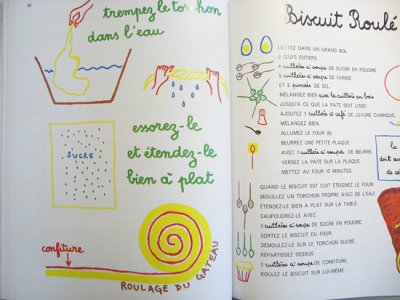 32
trempez le torchon
dans l'eau
essorez-le
et étendez-le
bien à plat
SUCRE
confiture
ROULAGE DU GATEAU
Biscuit Roulé
METTEZ DANS UN GRAND BOL
2 ŒUFS ENTIERS
4 cuillères à soupe DE SUCRE EN POUDRE
5 cuillères à soupe DE FARINE
ET 2 pincées DE SEL
MÉLANGEZ BIEN avec la cuillère en bois
JUSQU'A CE QUE LA PATE SOIT LISSE.
AJOUTEZ 1 cuillère à café DE LEVURE CHIMIQUE.
MÉLANGEZ BIEN
ALLUMEZ LE FOUR (8)
BEURREZ UNE PETITE PLAQUE
AVEC 1 cuillère à soupe DE BEURRE.
VERSEZ LA PATE SUR LA PLAQUE.
METTEZ AU FOUR 12 MINUTES.
QUAND LE BISCUIT EST CUIT ÉTEIGNEZ LE FOUR.
MOUILLEZ UN TORCHON PROPRE AVEC DE L'EAU
ÉTENDEZ-LE BIEN A PLAT SUR LA TABLE
SAUPOUDREZ-LE AVEC
3 cuillères à soupe DE SUCRE EN POUDRE.
SORTEZ LE BISCUIT DU FOUR.
DÉMOULEZ-LE SUR LE TORCHON SUCRÉ.
RÉPARTISSEZ DESSUS
3 cuillères à soupe DE CONFITURE.
ROULEZ LE BISCUIT SUR LUI-MÊME.
la